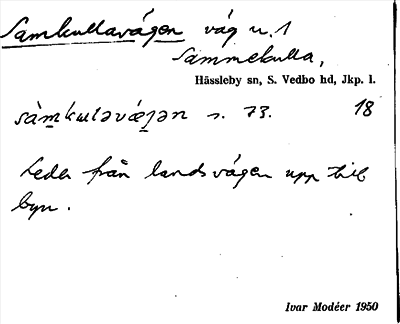 Samkullavägen väg u. 1
Sammekulla,
Hässleby sn, S. Vedbo hd, Jkp. l.
sàmkuləvǽgən s. 73. 18
Leder från landsvägen upp till
byn.
Ivar Modéer 1950